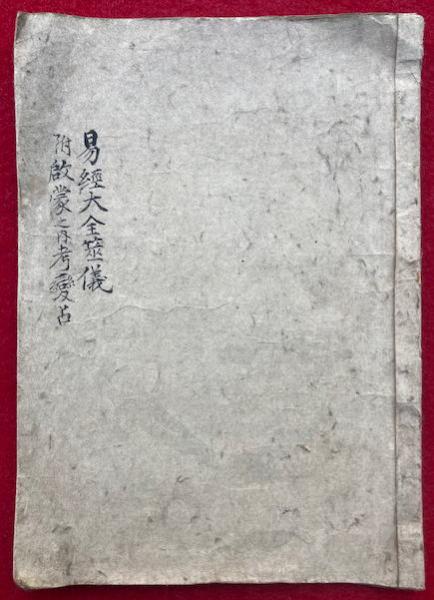 易經大全筮儀
附啟蒙之內考變占